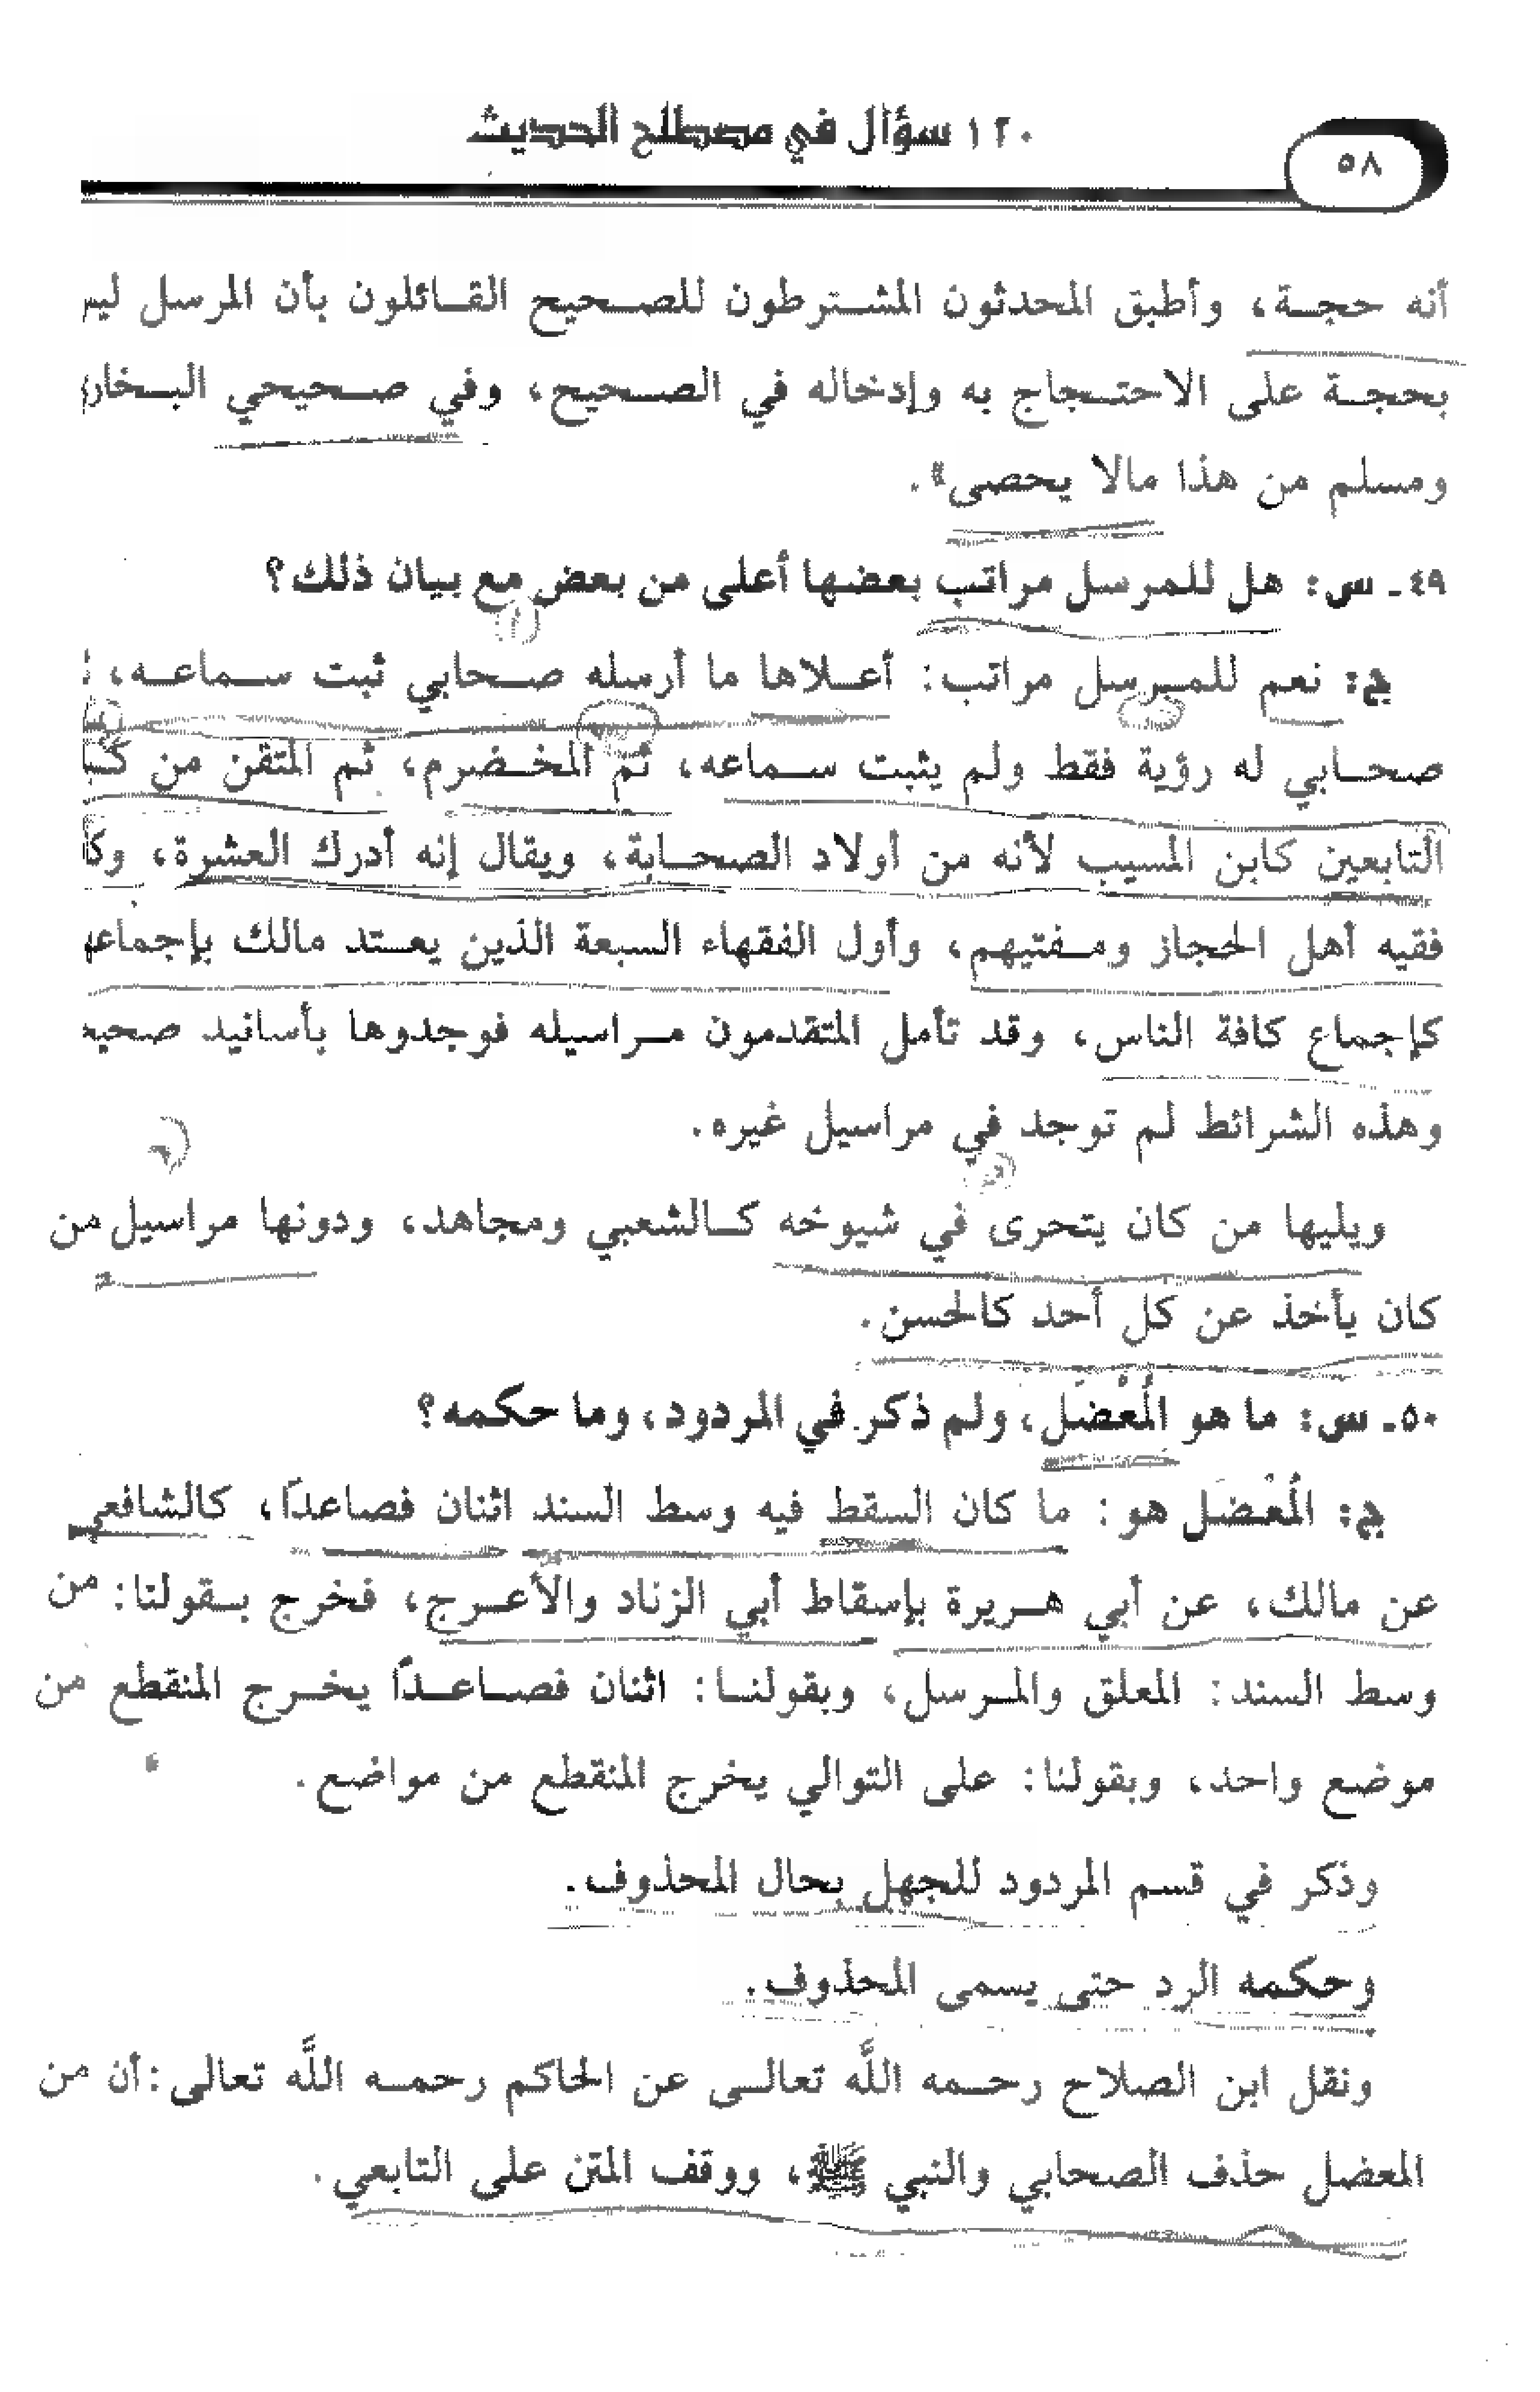 ١٢٠ سؤال في مصطلح الحديث
٥٨
أنه حجة، وأطبق المحدثون المشترطون للصحيح القائلون بأن المرسل
بحجة على الاحتجاج به وإدخاله في الصحيح، وفي صحيحي
ومسلم من هذا مالا يحصى».
٤٩ - س: هل للمرسل مراتب بعضها أعلى من بعض مع بيان ذلك؟
ج: نعم للمرسل مراتب: أعلاها ما أرسله صحابي ثبت سماعه،
صحابي له رؤية فقط ولم يثبت سماعه، ثم المخضرم، ثم المتقن من
التابعين كابن المسيب لأنه من أولاد الصحابة، ويقال إنه أدرك العشرة،
فقيه أهل الحجاز ومفتيهم، وأول الفقهاء السبعة الذين يعتد مالك
كإجماع كافة الناس، وقد تأمل المتقدمون مراسيله فوجدوها بأسانيد
وهذه الشرائط لم توجد في مراسيل غيره.
ويليها من كان يتحرى في شيوخه كالشعبي ومجاهد، ودونها مراسيل من
كان يأخذ عن كل أحد كالحسن.
٥٠ - س: ما هو المُعْضَل، ولم ذكر في المردود، وما حكمه؟
ج: المُعْضَل هو: ما كان السقط فيه وسط السند اثنان فصاعدًا، كالشافعي
عن مالك، عن أبي هريرة بإسقاط أبي الزناد والأعرج، فخرج بقولنا: من
وسط السند: المعلق والمرسل، وبقولنا: اثنان فصاعدًا يخرج المنقطع من
موضع واحد، وبقولنا: على التوالي يخرج المنقطع من مواضع.
وذكر في قسم المردود للجهل بحال المحذوف.
وحكمه الرد حتى يسمى المحذوف.
ونقل ابن الصلاح رحمه اللَّه تعالى عن الحاكم رحمه اللَّه تعالى: أن من
المعضل حذف الصحابي والنبي ﷺ، ووقف المتن على التابعي.